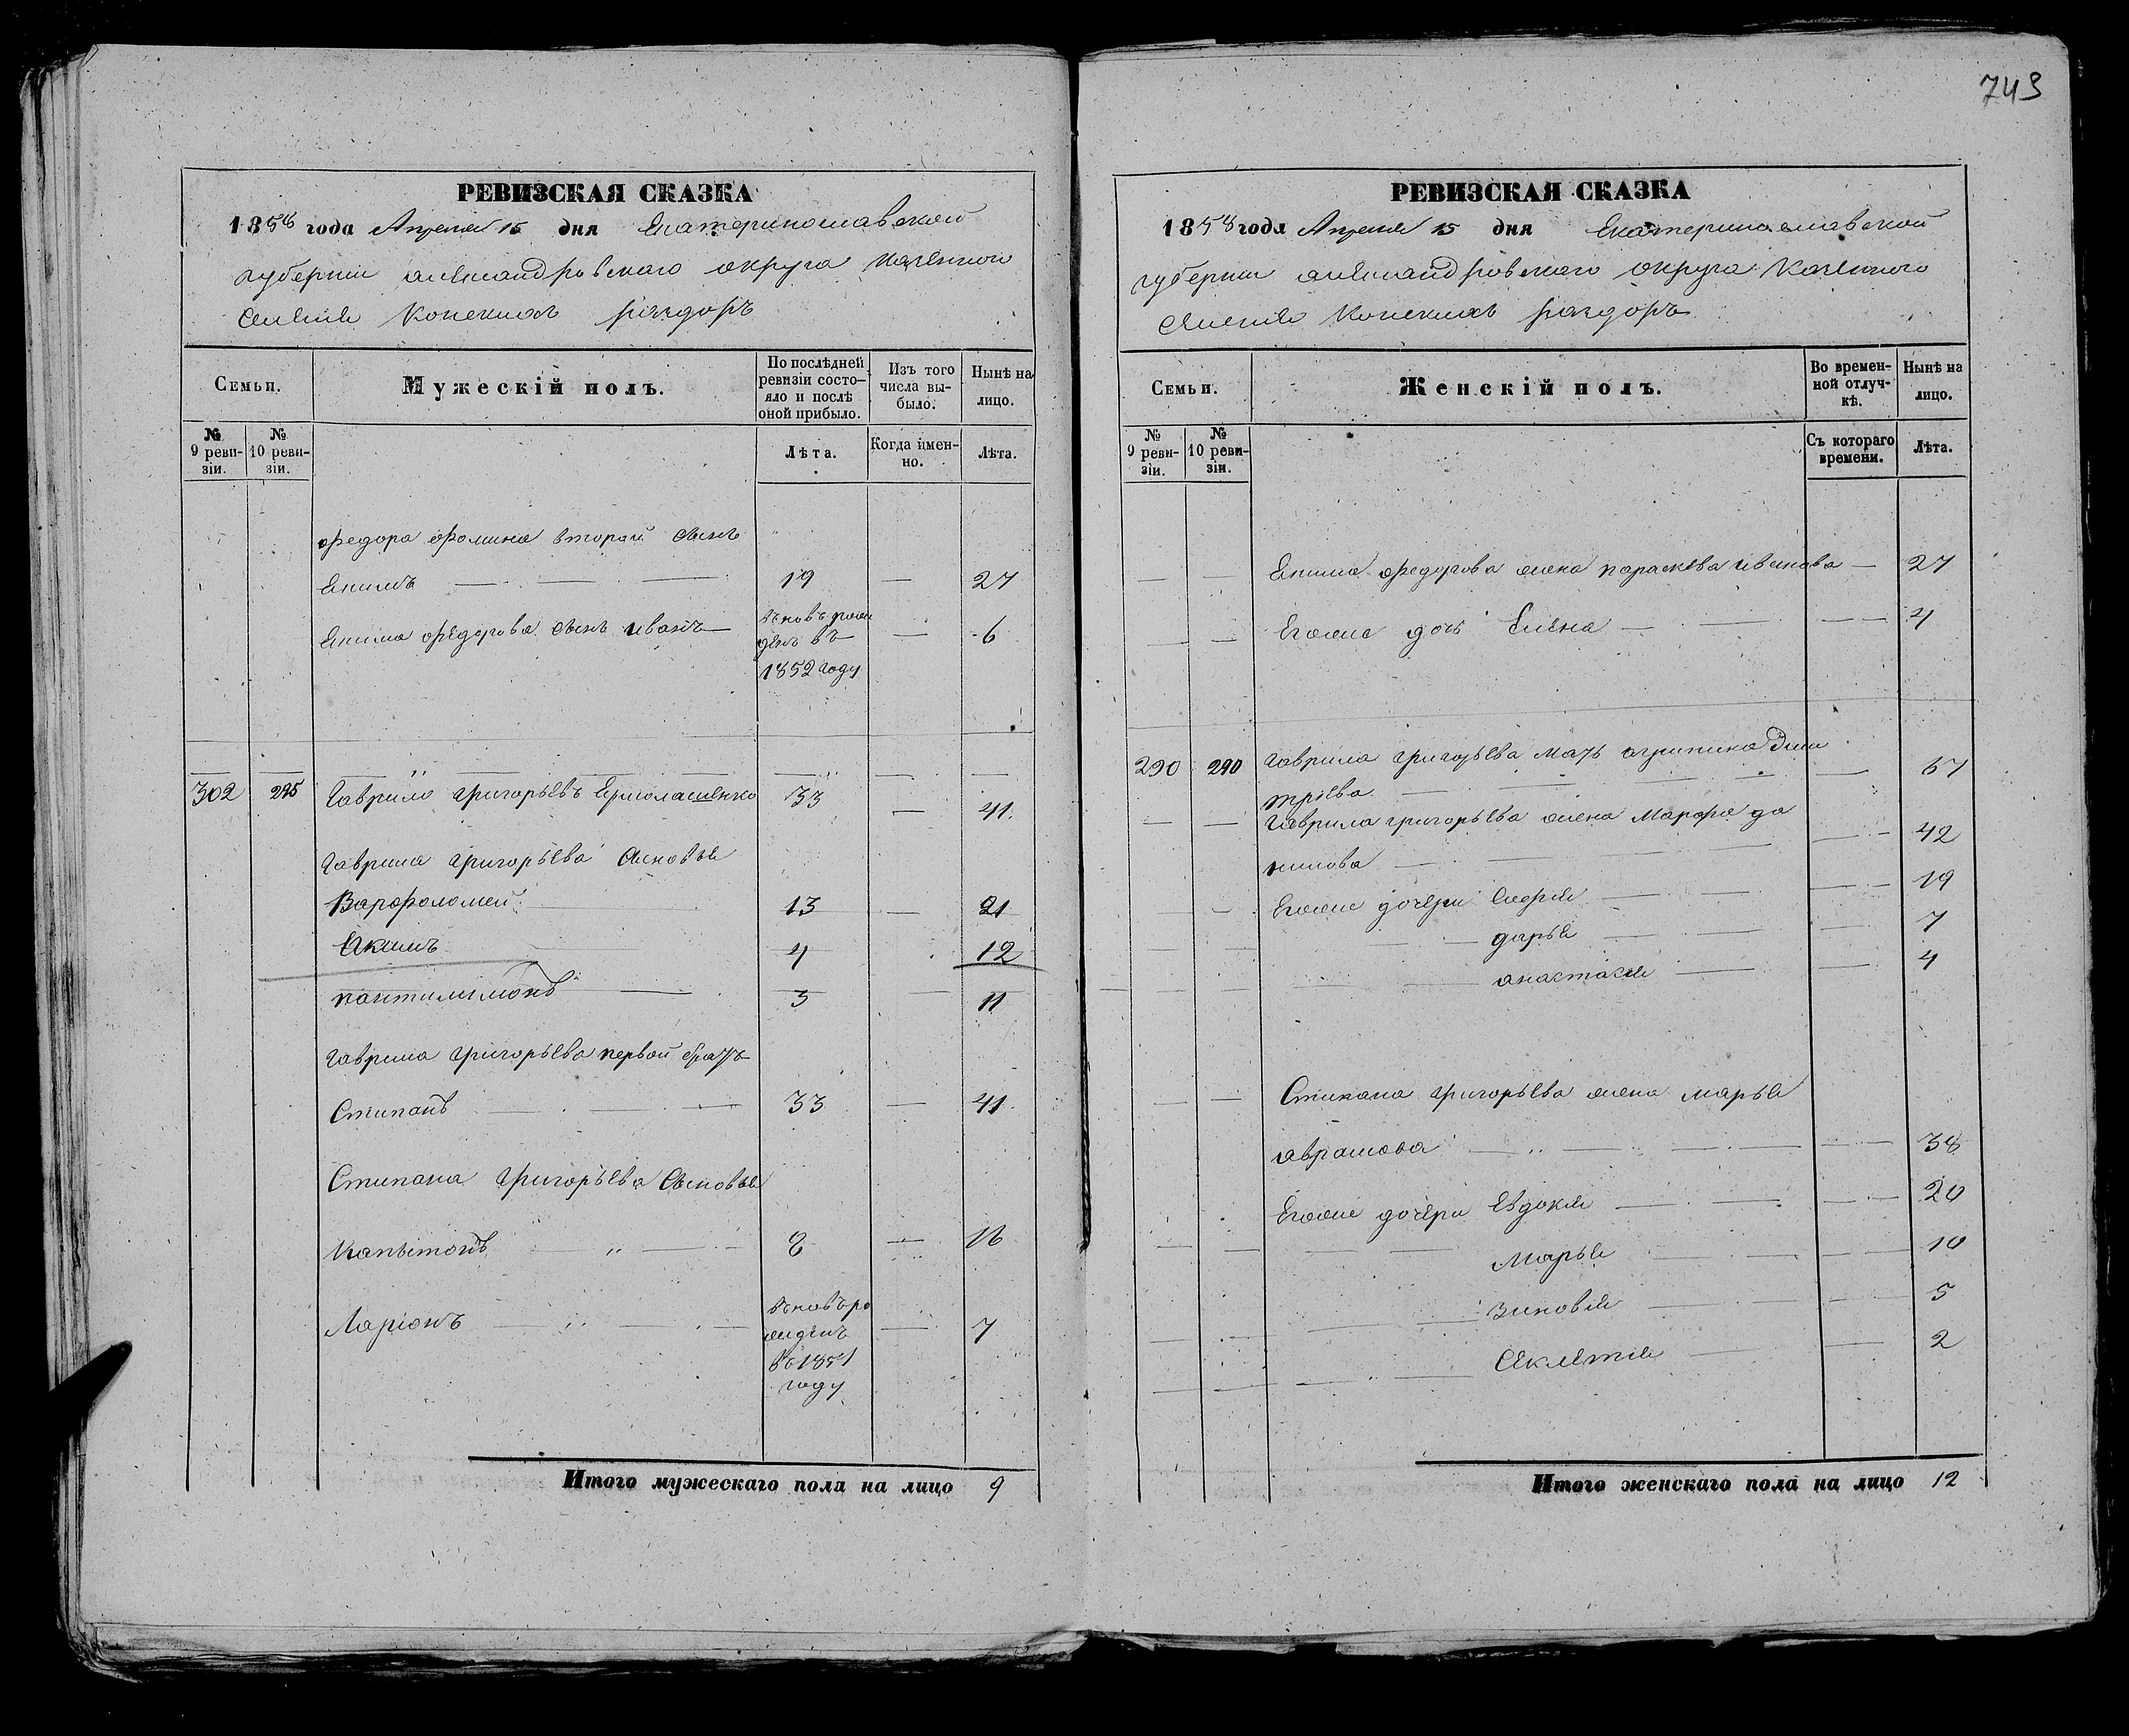 743
РЕВИЗСКАЯ СКАЗКА
1858 года Апреля 15 дня Екатеринославской
губернии александровскаго округа Казенного
селения Конских раздоръ
Семьи.
Мужескій полъ.
По послѣдней ревизіи состо-яло и послѣ оной прибыло.
Изъ того числа вы-было.
Нынѣ на лицо.
№ 9 реви-зіи.
№ 10 реви-зіи.
Лѣта.
Когда имен-но.
Лѣта.
Федора Фомина второй сынъ
Екимъ 19 — 27
Екима Федорова сынъ иванъ вновь рож денъ въ 1852 году — 6
302 295 Гаврило григорьевъ Ермолашенко 33 — 41
Гаврила григорьева сыновья
Варфоломей 13 — 21
Якимъ 4 12
пантилимонъ 3 — 11
Гаврила григорьева первой братъ
Стипанъ 33 — 41
Стипана григорьева сыновья
Капытонъ 8 — 16
Ларіонъ вновь ро жденъ въ 1851 году — 7
Итого мужескаго пола на лицо 9
РЕВИЗСКАЯ СКАЗКА
1858 года Апреля 15 дня Екатеринославской
губернии александровскаго округа Казенного
селения Конских раздоръ
Семьи.
Женскій полъ.
Во времен-ной отлуч-кѣ.
Нынѣ на лицо.
№ 9 реви-зіи.
№ 10 реви-зіи.
Съ котораго времени.
Лѣта.
Екима Федорова жена параскева иванова — 27
Егоже дочь Елена — 4
290 290 Гаврила григорьева мать агрипина Дми
трiева — 67
Гаврила григорьева жена Марфа да
нилова — 42
Егоже дочери София — 19
дарья — 7
анастасия — 4
Стипана григорьева жена марья
аврамова — 38
Егоже дочери Евдокия — 20
Марья — 10
Зиновия — 5
2
Итого женскаго пола на лицо 12